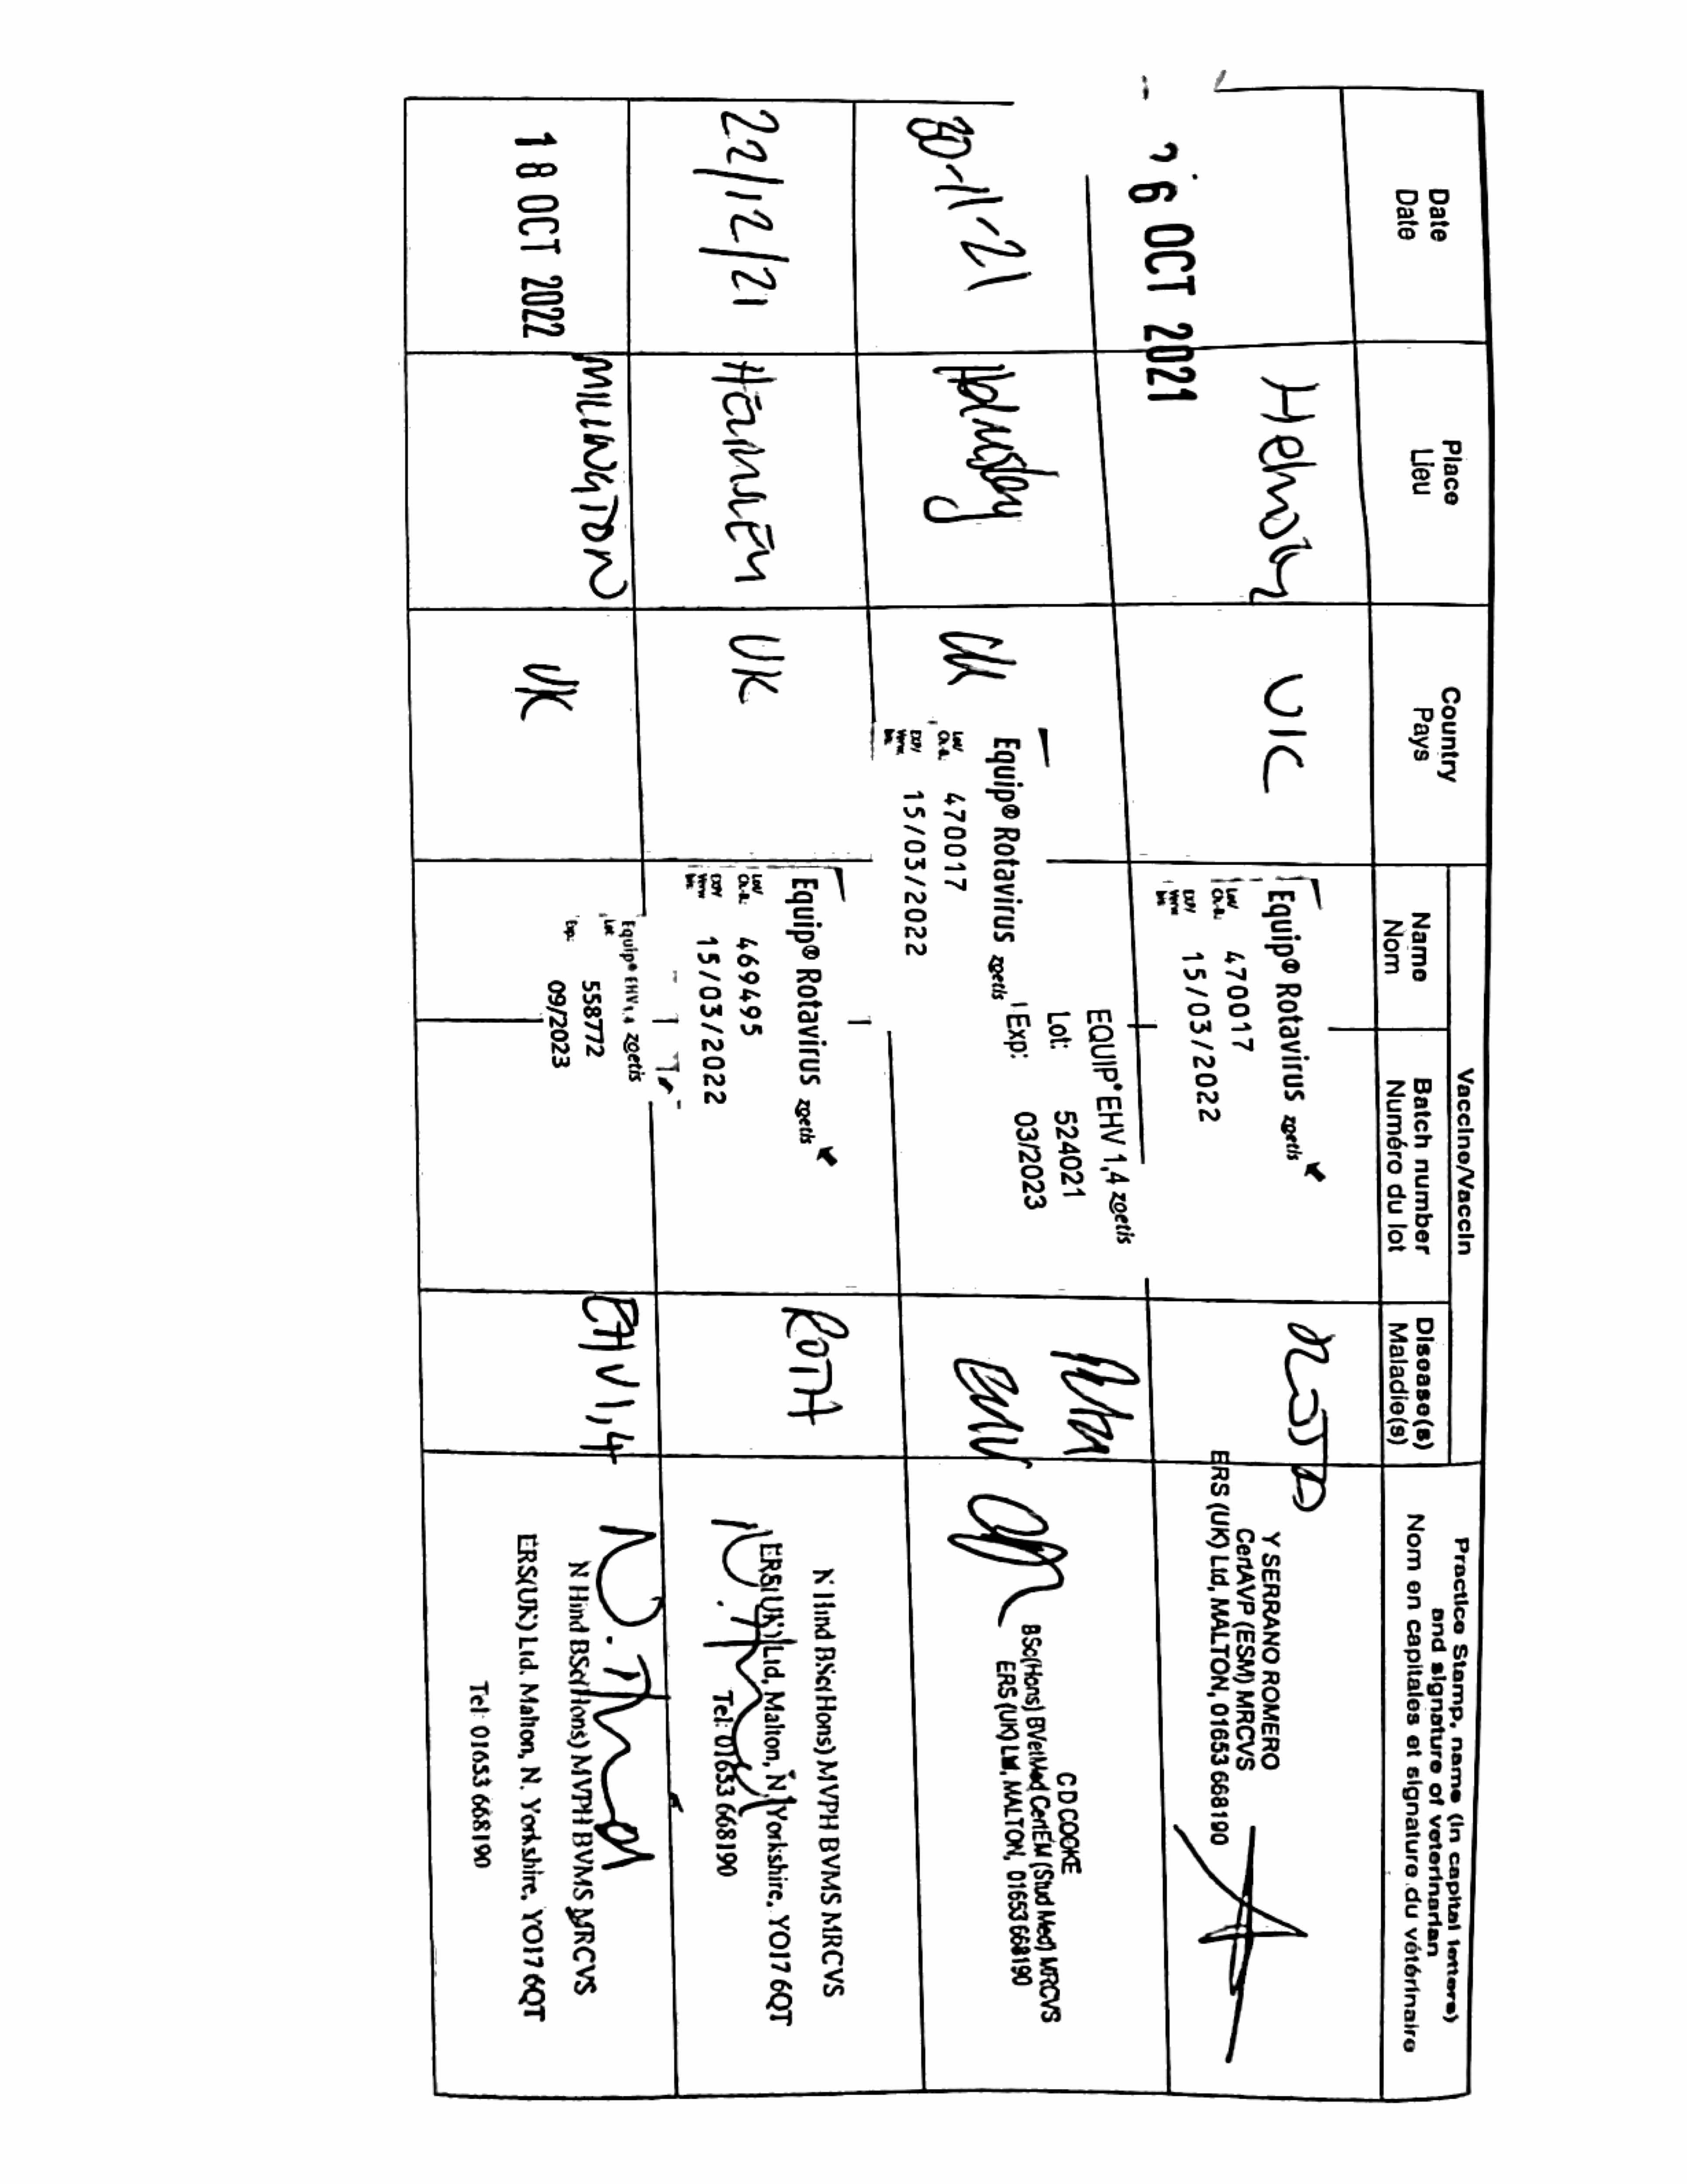 Date
Date
Place
Lieu
Country
Pays
Vaccine/Vaccin
Name
Nom
Batch number
Numéro du lot
Disease(s)
Maladie(s)
Practice Stamp, name (in capital letters)
and signature of veterinarian
Nom en capitales et signature du vétérinaire
6 OCT 2021
Helmsley
UK
Equip® Rotavirus zoetis
Lot/
Ch.-B.: 470017
EXP/
Verw. bis: 15/03/2022
ROTA
Y SERRANO ROMERO
CertAVP (ESM) MRCVS
ERS (UK) Ltd, MALTON, 01653 668190
30-11-21
Helmsley
UK
Equip® Rotavirus zoetis
Lot/
Ch.-B.: 470017
EXP/
Verw. bis: 15/03/2022
EQUIP® EHV 1,4 zoetis
Lot: 524021
Exp: 03/2023
Rota
EHV
C D COOKE
BSc(Hons) BVetMed CertEM (Stud Med) MRCVS
ERS (UK) Ltd, MALTON, 01653 668190
22/12/21
UK
Equip® Rotavirus zoetis
Lot/
Ch.-B.: 469495
EXP/
Verw. bis: 15/03/2022
ROTA
N Hind BSc(Hons) MVPH BVMS MRCVS
ERS(UK) Ltd, Malton, N. Yorkshire, YO17 6QT
Tel: 01653 668190
N. Hind
18 OCT 2022
MILLINGTON
UK
Equip® EHV1,4 zoetis
Lot: 558772
Exp: 09/2023
EHV1,4
N. Hind
N Hind BSc(Hons) MVPH BVMS MRCVS
ERS(UK) Ltd. Malton, N. Yorkshire, YO17 6QT
Tel: 01653 668190